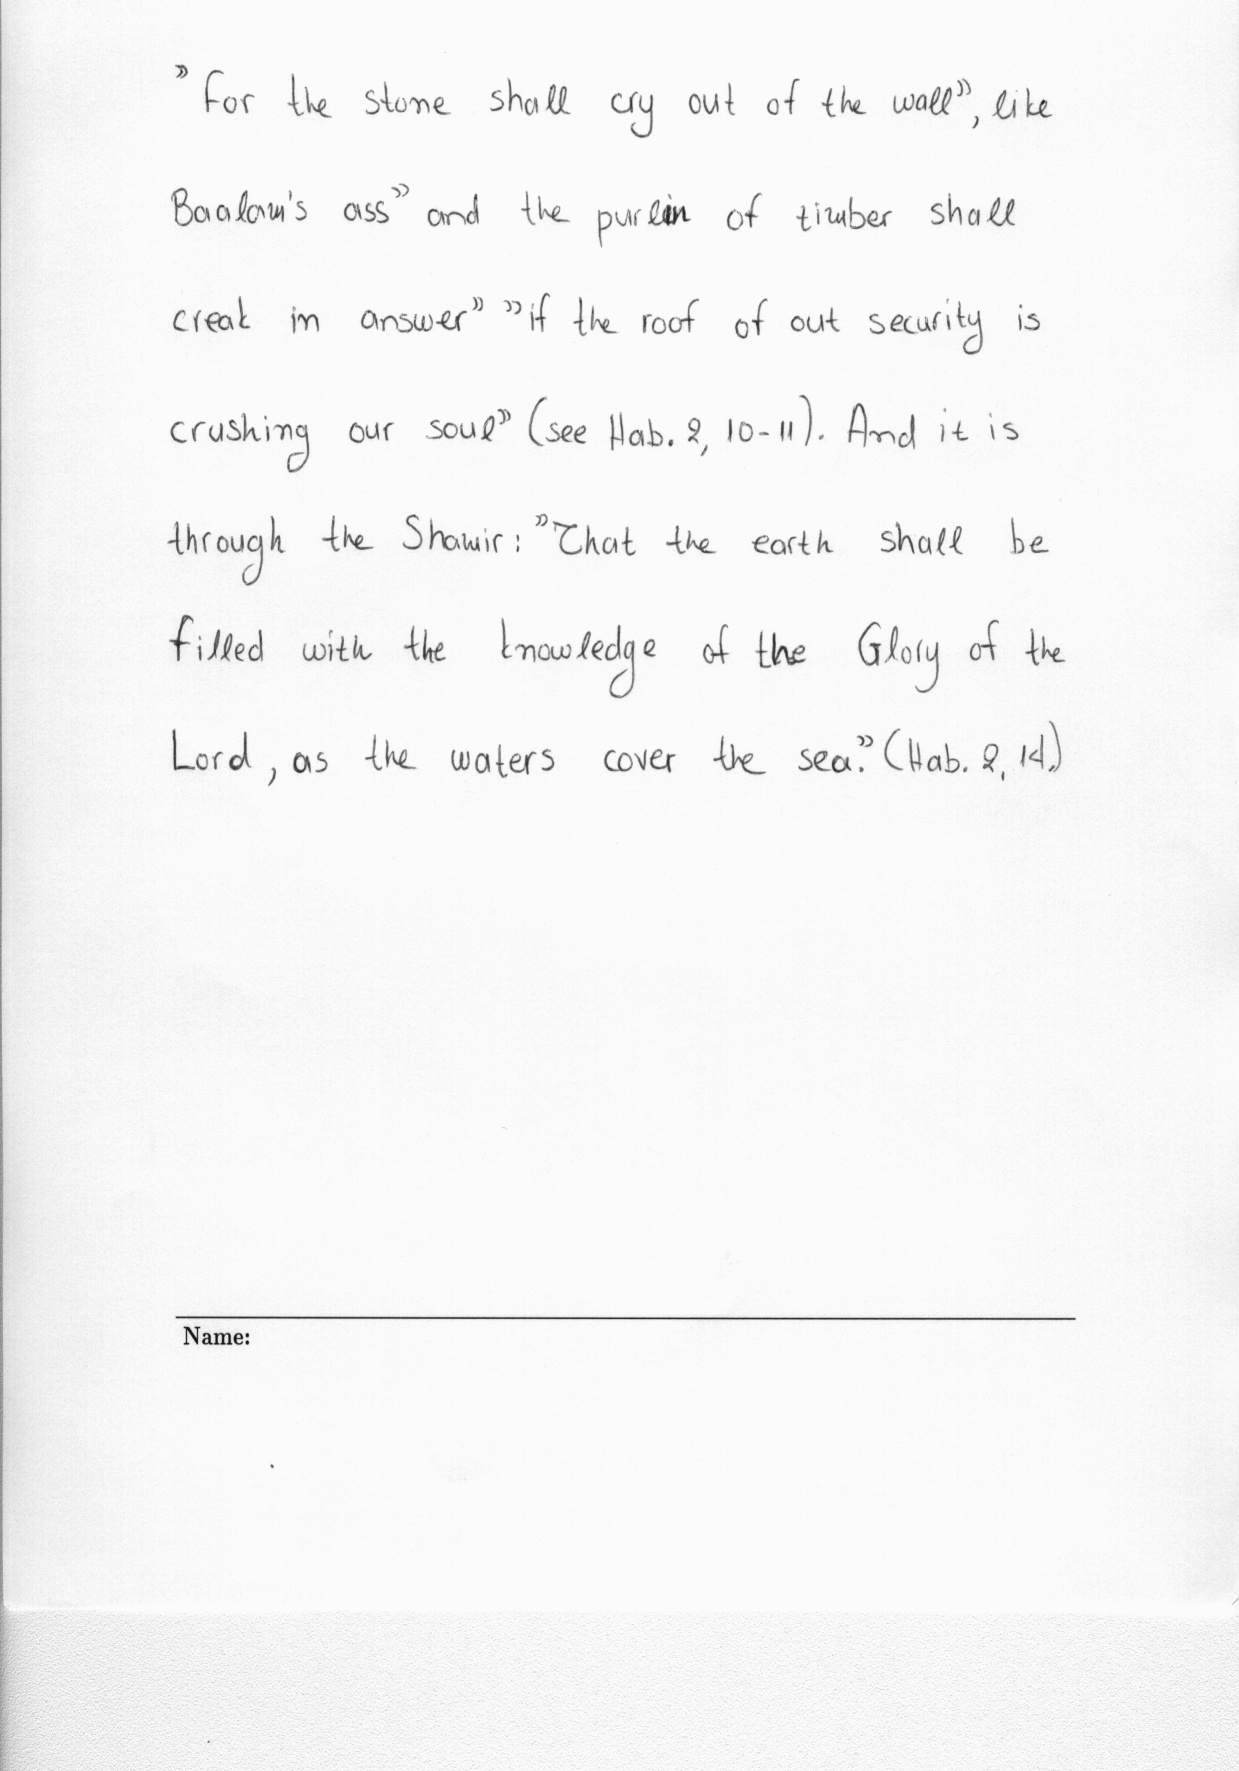 "For the stone shall cry out of the wall", like
Baalam's ass" and the purlin of timber shall
creak in answer" "if the roof of out security is
crushing our soul" (see Hab. 2, 10-11). And it is
through the Shamir: "That the earth shall be
filled with the knowledge of the Glory of the
Lord, as the waters cover the sea." (Hab. 2, 14.)
Name: